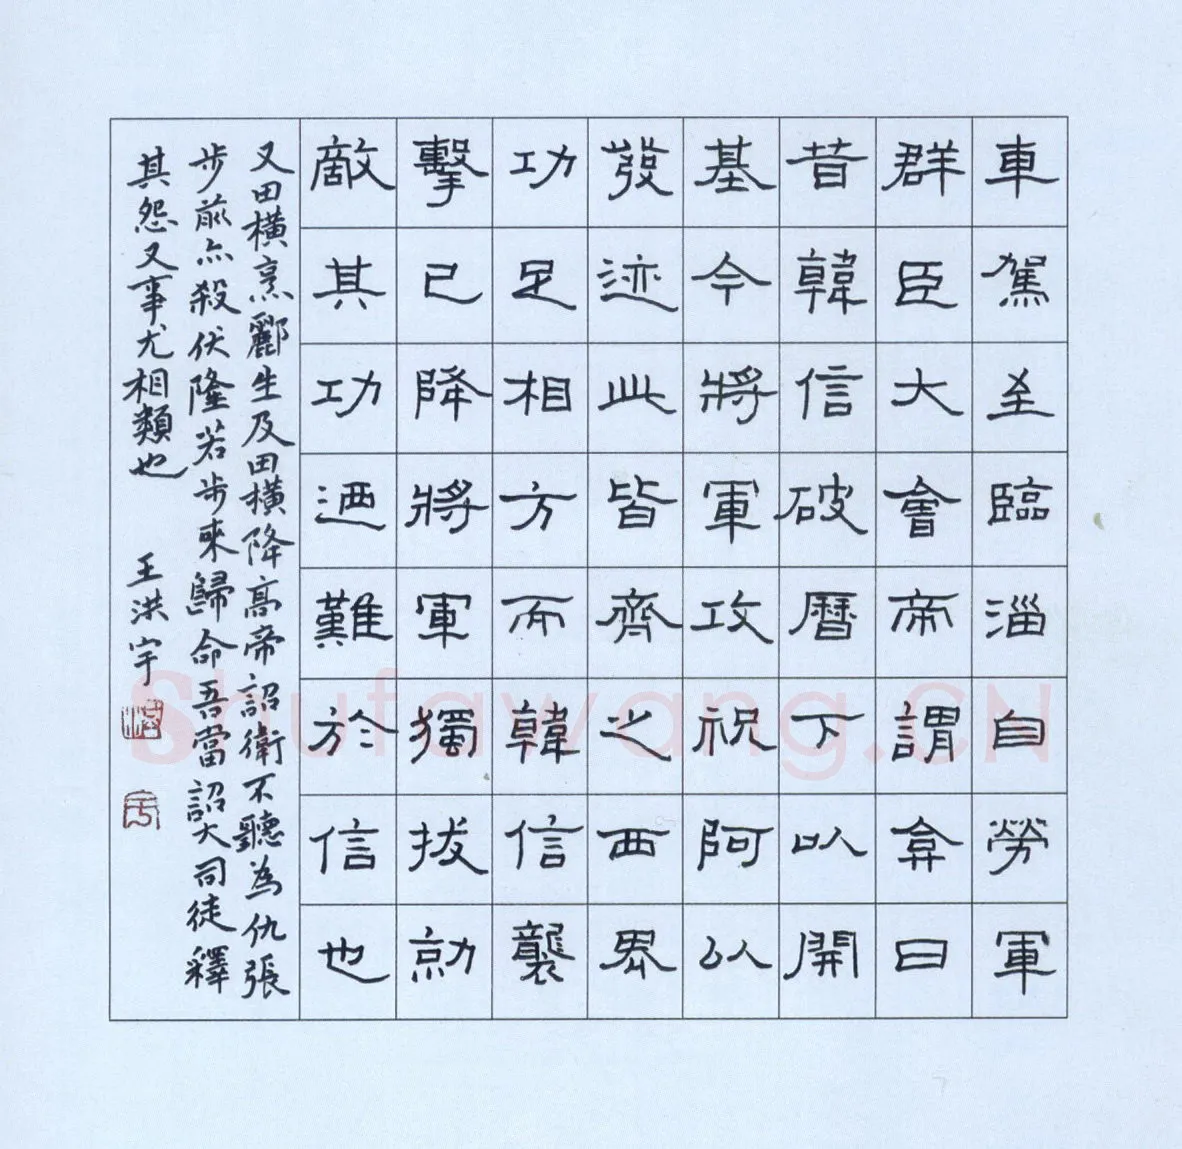 車駕至臨淄自勞軍
群臣大會帝謂弇曰
昔韓信破曆下以開
基今將軍攻祝阿以
發迹此皆齊之西界
功足相方而韓信襲
擊已降將軍獨拔勍
敵其功迺難於信也
又田橫烹酈生及田橫降高帝詔衛不聽為仇張
步前亦殺伏隆若步來歸命吾當詔大司徒釋
其怨又事尤相類也
王洪宇
Shufawang.CN